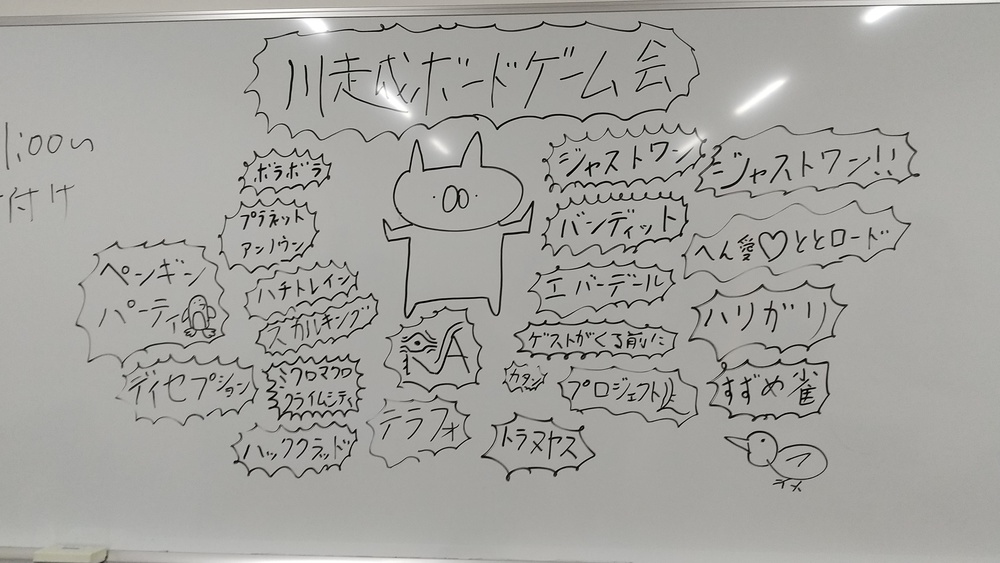 川越ボードゲーム会
1:00い
付け
ボラボラ
プラネット
アンノウン
ペンギン
パーティ
ハチトレイン
スカルキング
ディセプション
ミクロマクロ
クライムシティ
ハッククラッド
RA
テラフォ
ジャストワン
バンディット
エバーデール
ゲストがくる前に
カタン
プロジェクトL
トラヌヤス
ジャストワン!!
へん愛♡ととロード
ハリガリ
すずめ雀